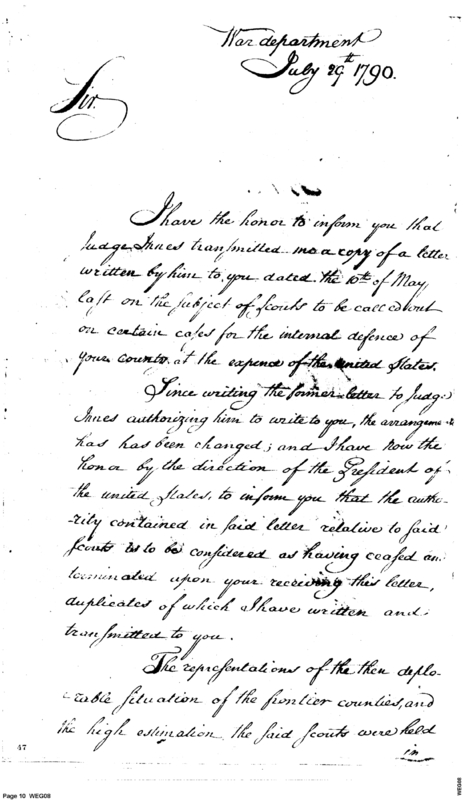 War department
July 29th 1790.
Sir.
I have the honor to inform you that
Judge Innes transmitted me a copy of a letter
written by him to you dated the 10th of May
last on the subject of Scouts to be called out
on certain cases for the internal defence of
your county at the expence of the united States.
Since writing the former letter to Judge
Innes authorizing him to write to you, the arrangeme
has has been changed; and I have now the
honor by the direction of the President of
the united States, to inform you that the autho-
-rity contained in said letter relative to said
Scouts is to be considered as having ceased an
terminated upon your receiving this letter,
duplicates of which I have written and
transmitted to you.
The representations of the then deplo-
-rable situation of the frontier counties, and
the high estimation the said Scouts were held
in
47
Page 10 WEG08
WEG08